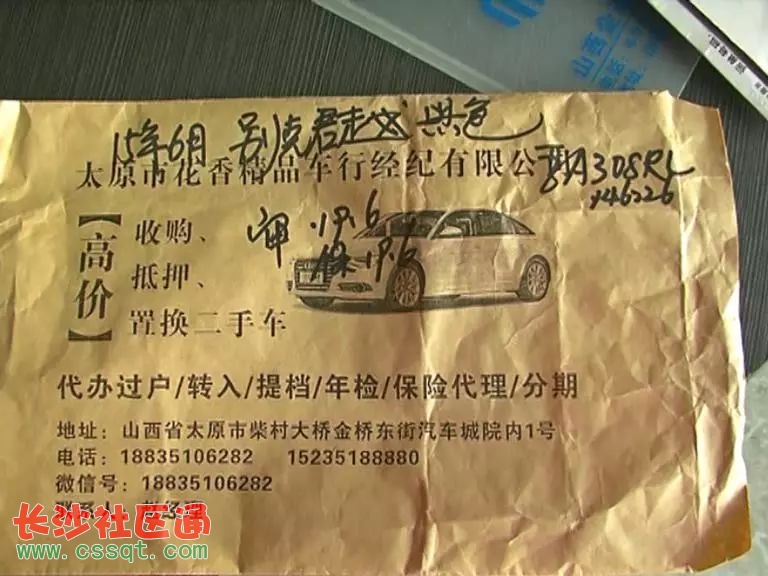 15年6月 别克君越 黑色
太原市花香精品车行经纪有限公司
晋A308RL
146226
【高价】
收购、
抵押、
置换二手车
审 19.6
保 19.6
代办过户/转入/提档/年检/保险代理/分期
地址：山西省太原市柴村大桥金桥东街汽车城院内1号
电话：18835106282 15235188880
微信号：18835106282
联系人
长沙社区通
www.cssqt.com
山西金